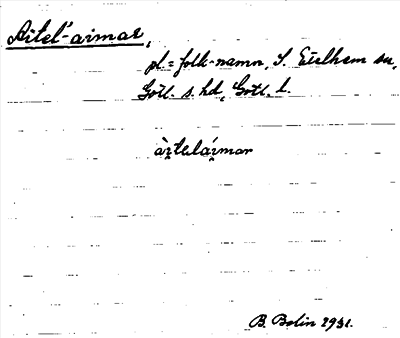 Aitel'-aimar,
pl = folk-namn, S. Eielhem sn,
Gotl. s. hd, Gotl. l.
B. Bolin 1931.